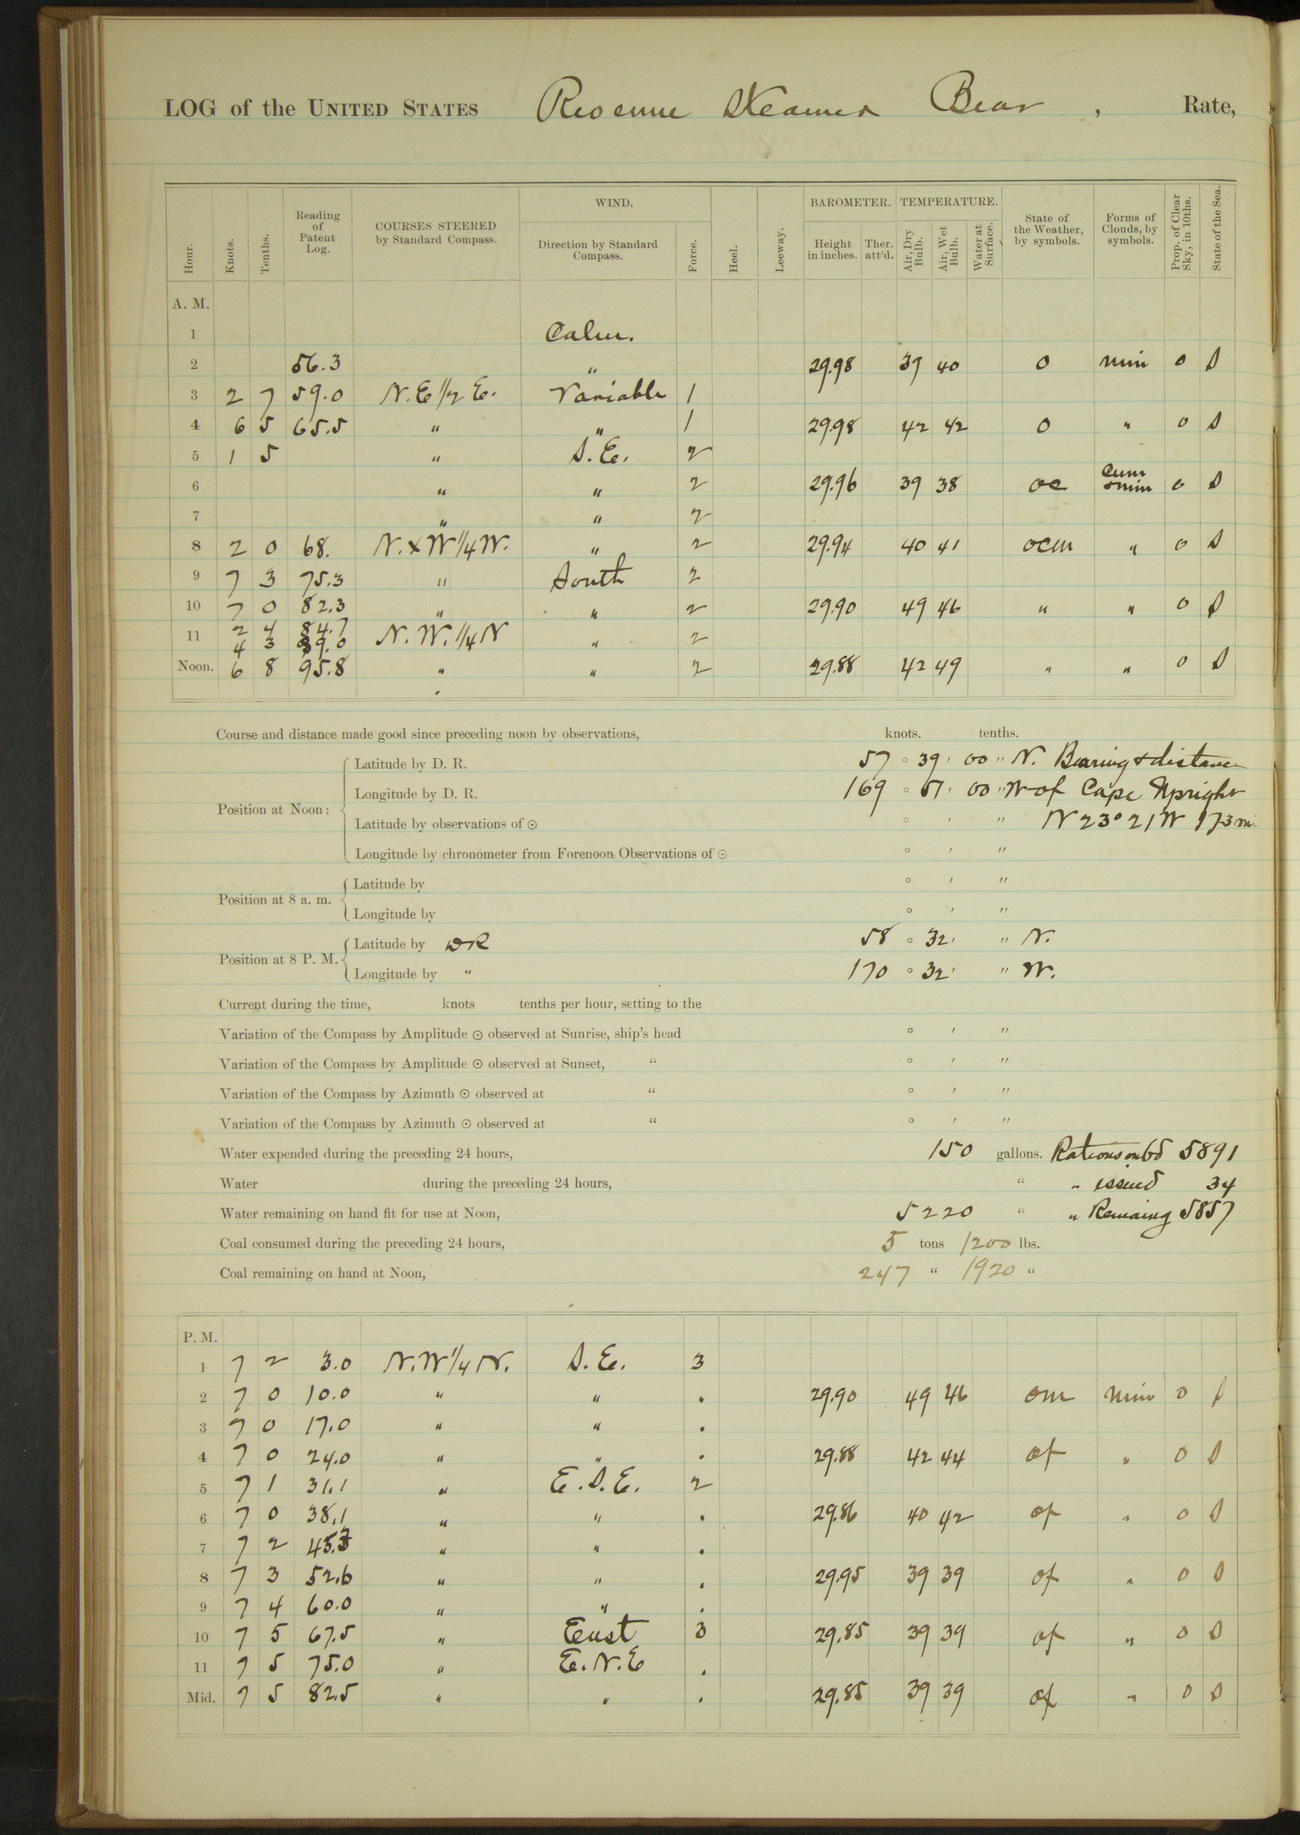 LOG of the UNITED STATES Revenue Steamer Bear , Rate,
Hour. Knots. Tenths. Reading of Patent Log. COURSES STEERED by Standard Compass. WIND. Direction by Standard Compass. Force. Heel. Leeway. BAROMETER. Height in inches. Ther. att'd. TEMPERATURE. Air, Dry Bulb. Air, Wet Bulb. Water at Surface. State of the Weather, by symbols. Forms of Clouds, by symbols. Prop. of Clear Sky, in 10ths. State of the Sea.
A. M.
1 Calm.
2 56.3 " 29.98 39 40 o nim 0 S
3 2 7 59.0 N.E 1/2 E. Variable 1
4 6 5 65.5 " " 1 29.98 42 42 o " 0 S
5 1 5 " S.E. 2
6 " " 2 29.96 39 38 oc Cum & nim 0 S
7 " " 2
8 2 0 68. N. x W 1/4 W. " 2 29.94 40 41 ocm " 0 S
9 7 3 75.3 " South 2
10 7 0 82.3 " " 2 29.90 49 46 " " 0 S
2 4 84.7
11 4 3 89.0 N. W. 1/4 N " 2
Noon. 6 8 95.8 " " 2 29.88 42 49 " " 0 S
Course and distance made good since preceding noon by observations, knots. tenths.
Position at Noon: Latitude by D. R. 57 ° 39 ' 00 " N. Bearing & distance
Longitude by D. R. 169 ° 51 ' 00 " W of Cape Upright
Latitude by observations of ☉ ° ' " N 23° 21 W 173 m
Longitude by chronometer from Forenoon Observations of ☉ ° ' "
Position at 8 a. m. Latitude by ° ' "
Longitude by ° ' "
Position at 8 P. M. Latitude by DR 58 ° 32 ' " N.
Longitude by " 170 ° 32 ' " W.
Current during the time, knots tenths per hour, setting to the
Variation of the Compass by Amplitude ☉ observed at Sunrise, ship's head ° ' "
Variation of the Compass by Amplitude ☉ observed at Sunset, " ° ' "
Variation of the Compass by Azimuth ☉ observed at " ° ' "
Variation of the Compass by Azimuth ☉ observed at " ° ' "
Water expended during the preceding 24 hours, 150 gallons. Rations on bd 5891
Water during the preceding 24 hours, " " issued 34
Water remaining on hand fit for use at Noon, 5220 " " Remaing 5857
Coal consumed during the preceding 24 hours, 5 tons 1200 lbs.
Coal remaining on hand at Noon, 247 " 1920 "
P. M.
1 7 2 3.0 N.W 1/4 N. S.E. 3
2 7 0 10.0 " " " 29.90 49 46 om nim 0 S
3 7 0 17.0 " " "
4 7 0 24.0 " " " 29.88 42 44 of " 0 S
5 7 1 31.1 " E.S.E. 2
6 7 0 38.1 " " " 29.86 40 42 of " 0 S
7 7 2 45.3 " " "
8 7 3 52.6 " " " 29.95 39 39 of " 0 S
9 7 4 60.0 " " "
10 7 5 67.5 " East 3 29.85 39 39 of " 0 S
11 7 5 75.0 " E.N.E "
Mid. 7 5 82.5 " " " 29.85 39 39 of " 0 S